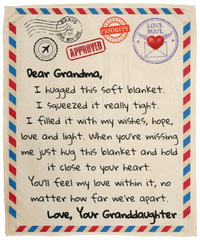 PARIS
APPROVED
PRIORITY
LOVE
MAIL
Dear Grandma,
I hugged this soft blanket.
I squeezed it really tight.
I filled it with my wishes, hope,
love and light. When you're missing
me just hug this blanket and hold
it close to your heart.
You'll feel my love within it, no
matter how far we're apart.
Love, Your Granddaughter